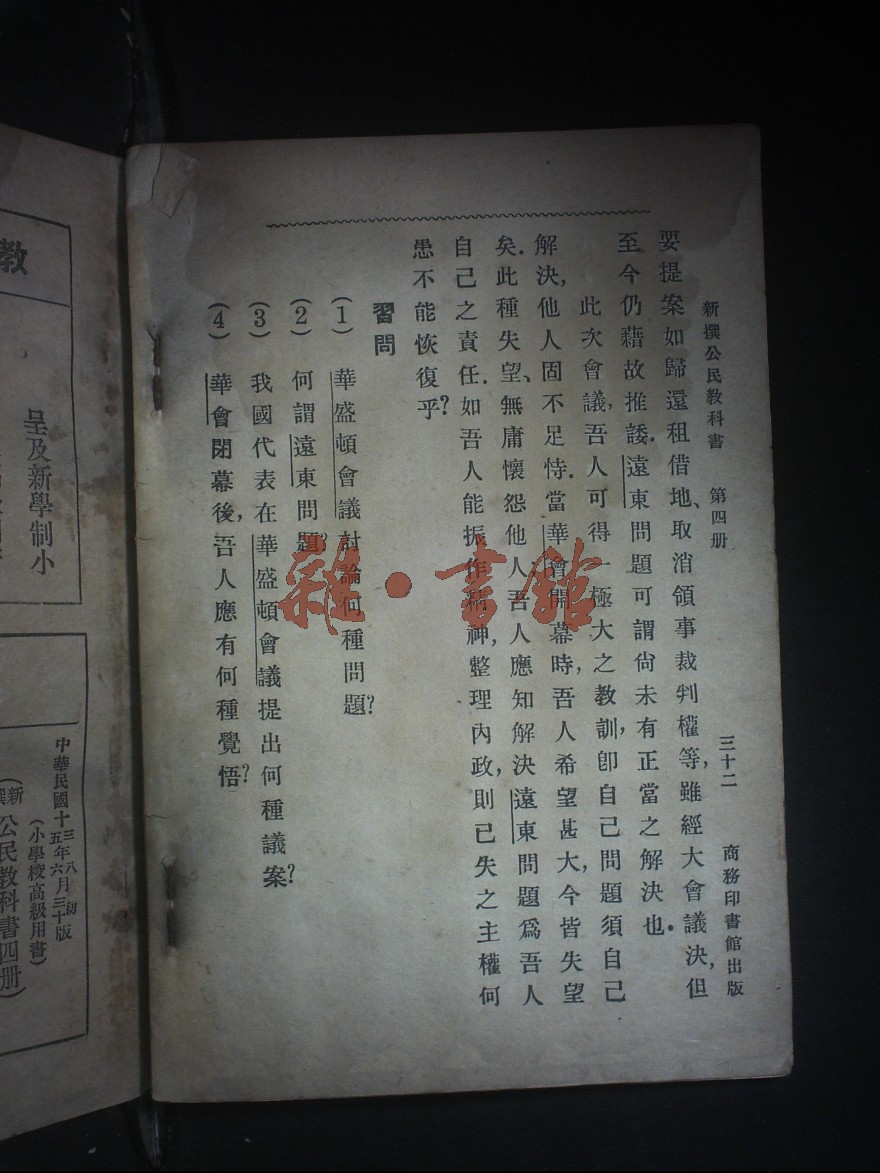 新撰公民教科書 第四册 三十二 商務印書館出版
要提案如歸還租借地、取消領事裁判權等,雖經大會議決,但
至今仍藉故推諉.遠東問題可謂尙未有正當之解決也.
此次會議,吾人可得一極大之教訓,卽自己問題須自己
解決,他人固不足恃.當華會開幕時,吾人希望甚大,今皆失望
矣.此種失望、無庸懷怨他人,吾人應知解決遠東問題爲吾人
自己之責任.如吾人能振作精神,整理內政,則已失之主權何
患不能恢復乎?
習問
(1) 華盛頓會議討論何種問題?
(2) 何謂遠東問題?
(3) 我國代表在華盛頓會議提出何種議案?
(4) 華會閉幕後,吾人應有何種覺悟?
雜·書館
教
呈及新學制小
中華民國十
三年八月初
五年六月三十版
(小學校高級用書)
(新撰
公民教科書四册)